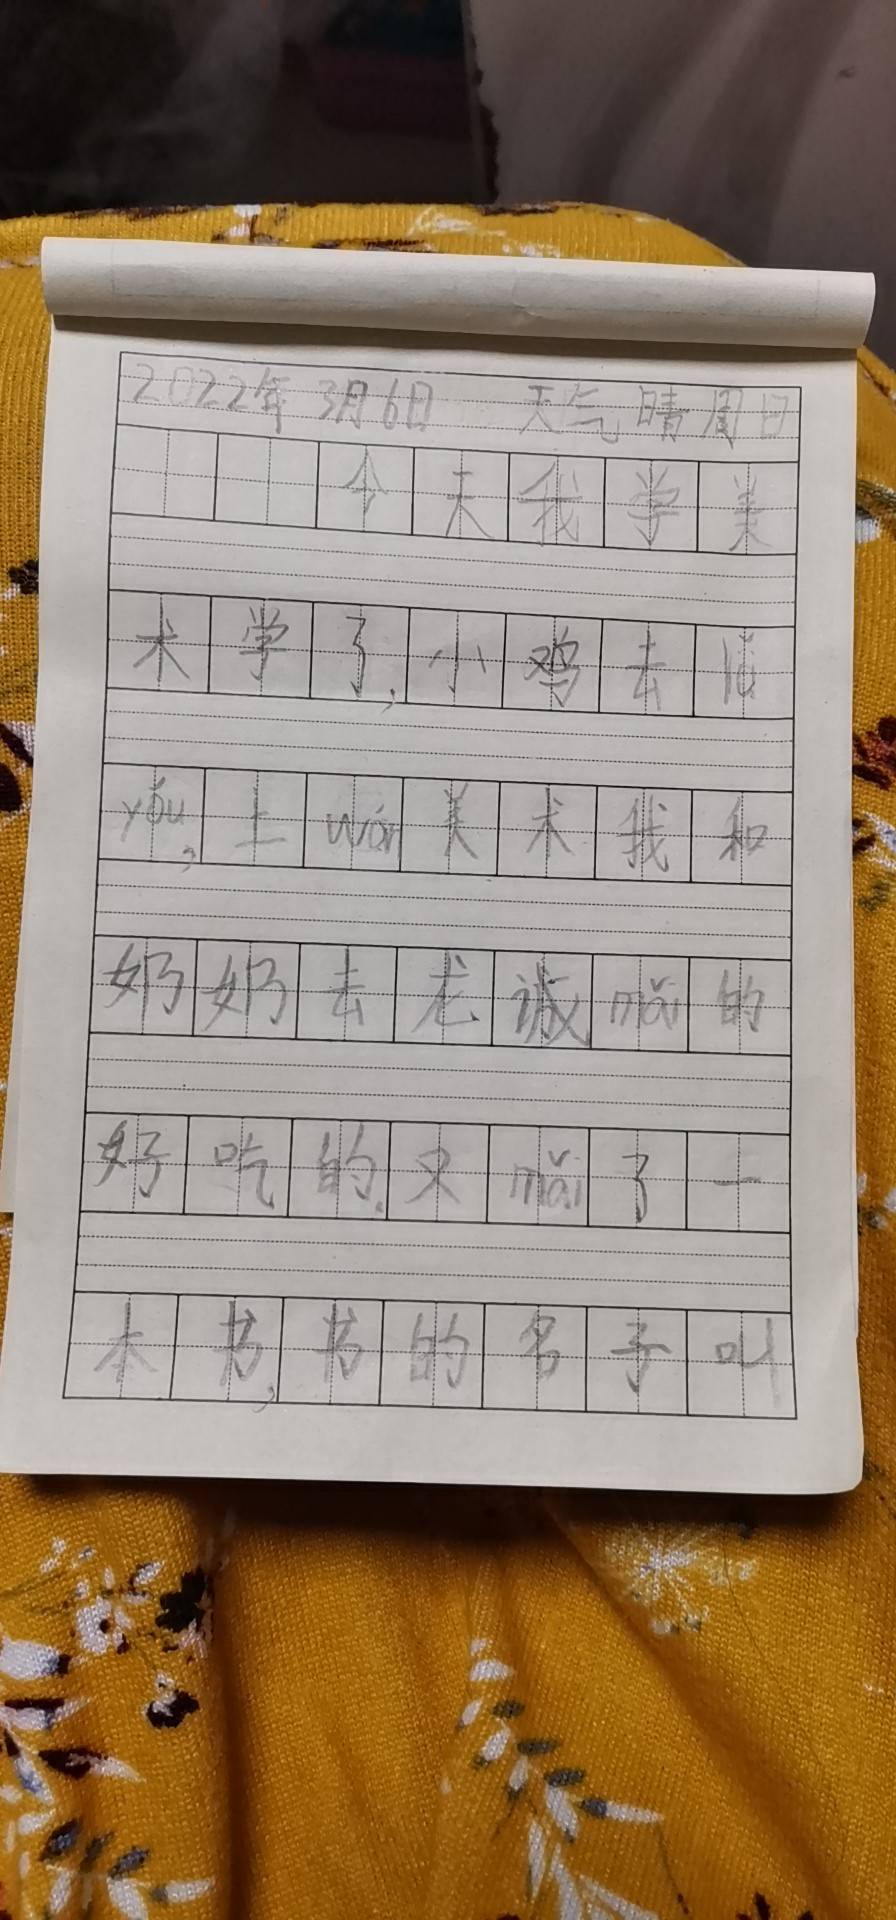 2022年3月6日 天气晴周日
今天我学美
术学了,小鸡去lǚ
yǒu,上wán美术我和
奶奶去龙诚mǎi的
好吃的.又mǎi了一
本书,书的名子叫